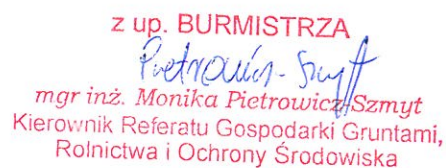 z up. BURMISTRZA
Pietrowicz-Szmyt
mgr inż. Monika Pietrowicz-Szmyt
Kierownik Referatu Gospodarki Gruntami,
Rolnictwa i Ochrony Środowiska